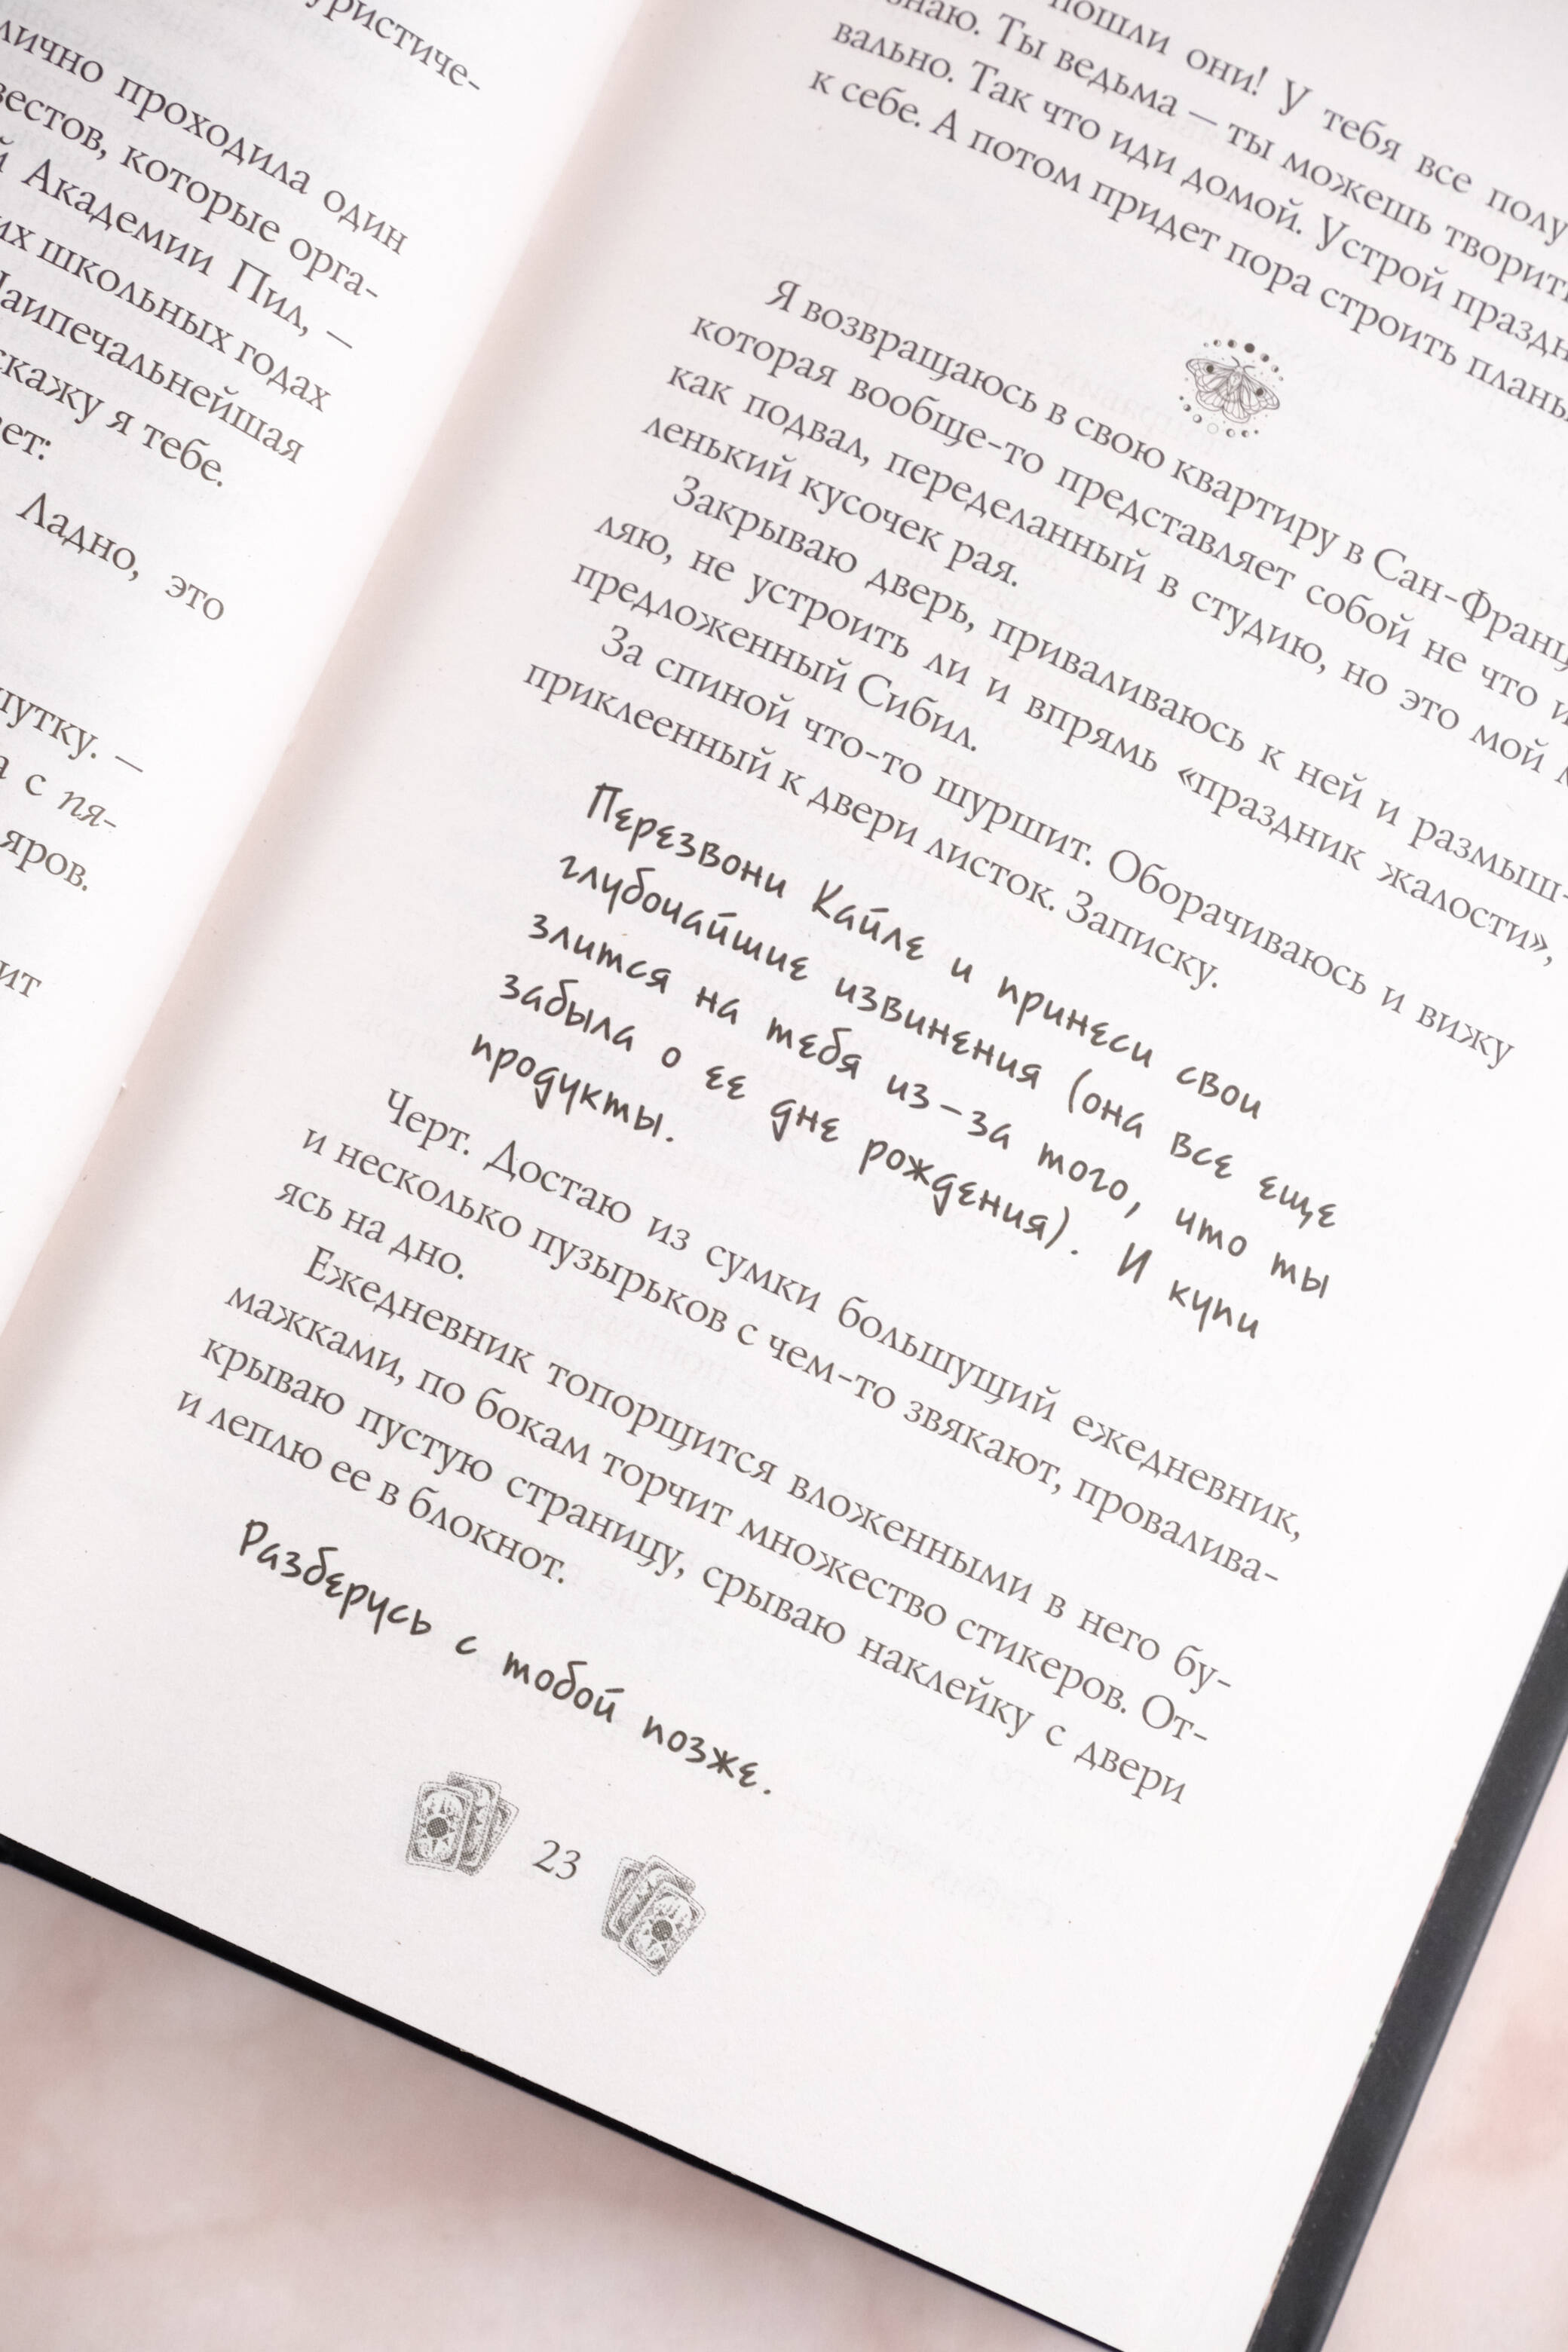 лично проходила один
которые орга-
Академии Пил, —
школьных годах
скажу я тебе.
Ладно, это
с пя-
пошли они! У тебя все
Ты ведьма — ты можешь творить
Так что иди домой. Устрой
к себе. А потом придет пора строить планы
Я возвращаюсь в свою квартиру в
которая вообще-то представляет собой не что
как подвал, переделанный в студию, но это мой
ленький кусочек рая.
Закрываю дверь, приваливаюсь к ней и размыш-
ляю, не устроить ли и впрямь «праздник жалости»,
предложенный Сибил.
За спиной что-то шуршит. Оборачиваюсь и вижу
приклеенный к двери листок. Записку.
Перезвони Кайле и принеси свои
глубочайшие извинения (она все еще
злится на тебя из-за того, что ты
забыла о ее дне рождения). И купи
продукты.
Черт. Достаю из сумки большущий ежедневник,
и несколько пузырьков с чем-то звякают, провалива-
ясь на дно.
Ежедневник топорщится вложенными в него бу-
мажками, по бокам торчит множество стикеров. От-
крываю пустую страницу, срываю наклейку с двери
и леплю ее в блокнот.
Разберусь с тобой позже.
23